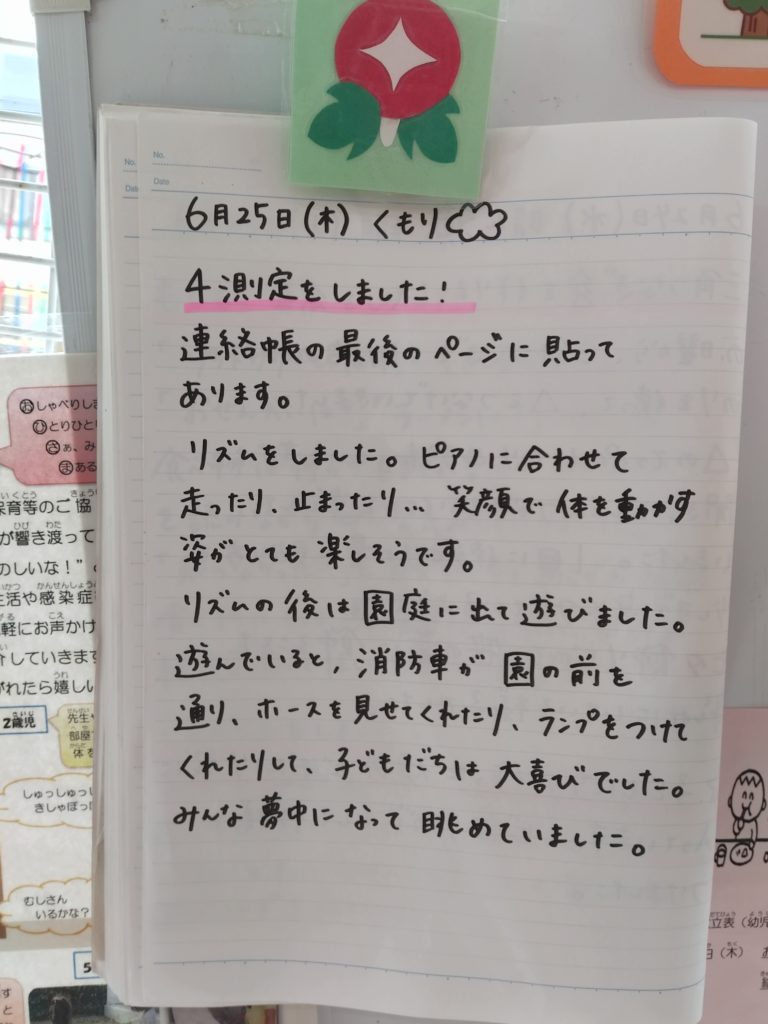 No.
Date
6月25日(木) くもり
4測定をしました!
連絡帳の最後のページに貼って
あります。
リズムをしました。ピアノに合わせて
走ったり、止まったり… 笑顔で体を動かす
姿がとても楽しそうです。
リズムの後は園庭に出て遊びました。
遊んでいると、消防車が園の前を
通り、ホースを見せてくれたり、ランプをつけて
くれたりして、子どもだちは大喜びでした。
みんな夢中になって眺めていました。
No.
おしゃべりし
ひとりひと
さぁ、み
まある
保育等のご協
が響き渡って
のしいな!”
生活や感染症
軽にお声かけ
介していきます
がれたら嬉しい
2歳児
先生
部屋
体を
しゅっしゅっし
きしゃぽっ
むしさん
いるかな?
5
立表(幼児
日(木)